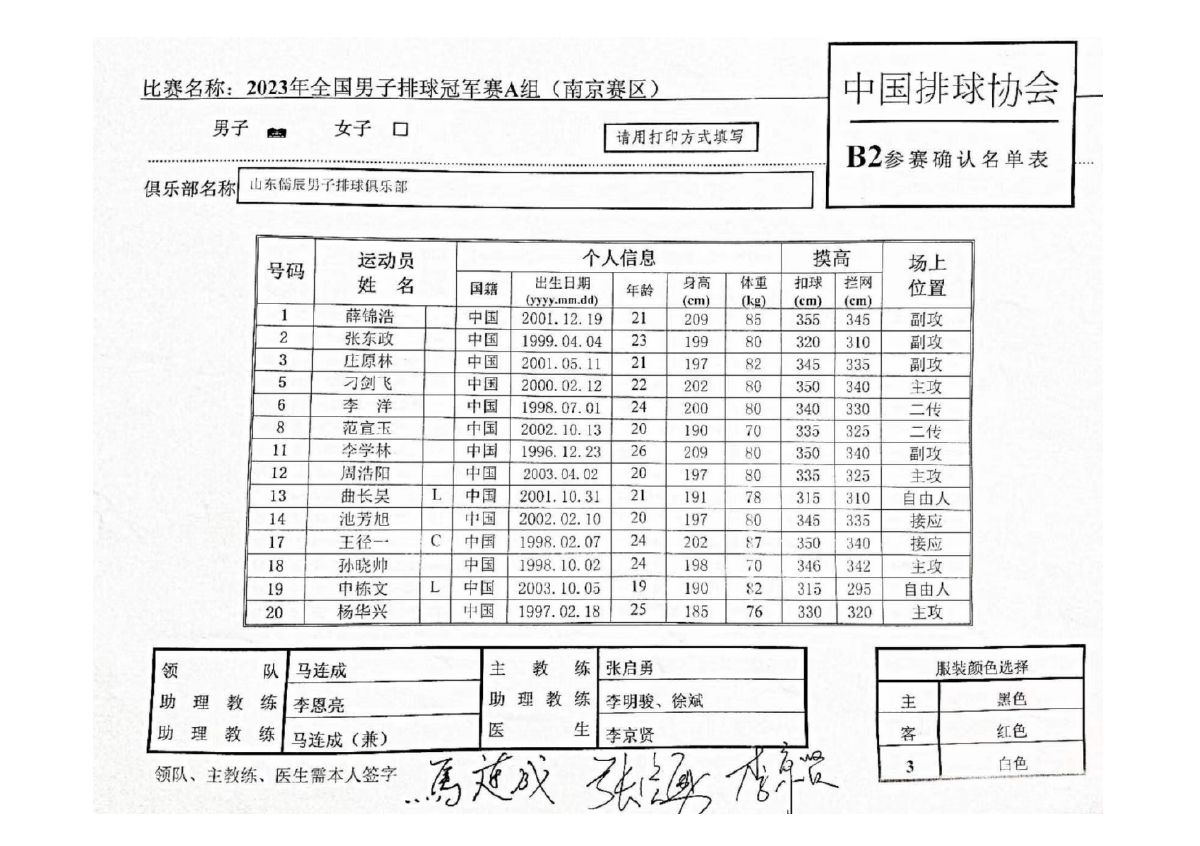 比赛名称：2023年全国男子排球冠军赛A组（南京赛区）
中国排球协会
男子 女子 □
请用打印方式填写
B2参赛确认名单表
俱乐部名称 山东儒辰男子排球俱乐部
号码 运动员姓名 个人信息 摸高 场上位置
国籍 出生日期(yyyy.mm.dd) 年龄 身高(cm) 体重(kg) 扣球(cm) 拦网(cm)
1 薛锦浩 中国 2001.12.19 21 209 85 355 345 副攻
2 张东政 中国 1999.04.04 23 199 80 320 310 副攻
3 庄原林 中国 2001.05.11 21 197 82 345 335 副攻
5 刁剑飞 中国 2000.02.12 22 202 80 350 340 主攻
6 李 洋 中国 1998.07.01 24 200 80 340 330 二传
8 范宣玉 中国 2002.10.13 20 190 70 335 325 二传
11 李学林 中国 1996.12.23 26 209 80 350 340 副攻
12 周浩阳 中国 2003.04.02 20 197 80 335 325 主攻
13 曲长昊 L 中国 2001.10.31 21 191 78 315 310 自由人
14 池芳旭 中国 2002.02.10 20 197 80 345 335 接应
17 王径一 C 中国 1998.02.07 24 202 87 350 340 接应
18 孙晓帅 中国 1998.10.02 24 198 70 346 342 主攻
19 申栋文 L 中国 2003.10.05 19 190 82 315 295 自由人
20 杨华兴 中国 1997.02.18 25 185 76 330 320 主攻
领 队 马连成 主 教 练 张启勇
助 理 教 练 李恩亮 助 理 教 练 李明骏、徐斌
助 理 教 练 马连成（兼） 医 生 李京贤
服装颜色选择
主 黑色
客 红色
3 白色
领队、主教练、医生需本人签字 馬連成 张启勇 李京贤